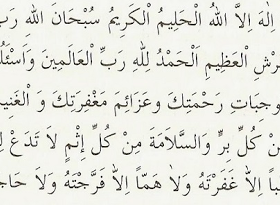 اِلٰهَ اِلاَّ اللهُ الْحَلِيمُ الْكَرِيمُ سُبْحَانَ اللهِ رَبِّ
رْشِ الْعَظِيمِ الْحَمْدُ لِلّٰهِ رَبِّ الْعَالَمِينَ وَاَسْئَلُ
وجِبَاتِ رَحْمَتِكَ وعَزَائِمَ مَغْفِرَتِكَ وَ الْغَنِيمَ
نْ كُلِّ بِرٍّ وَالسَّلاَمَةَ مِنْ كُلِّ اِثْمٍ لاَ تَدَعْ لِ
باً اِلاَّ غَفَرْتَهُ وَلاَ هَمّاً اِلاَّ فَرَّجْتَهُ وَلاَ حَاجَ